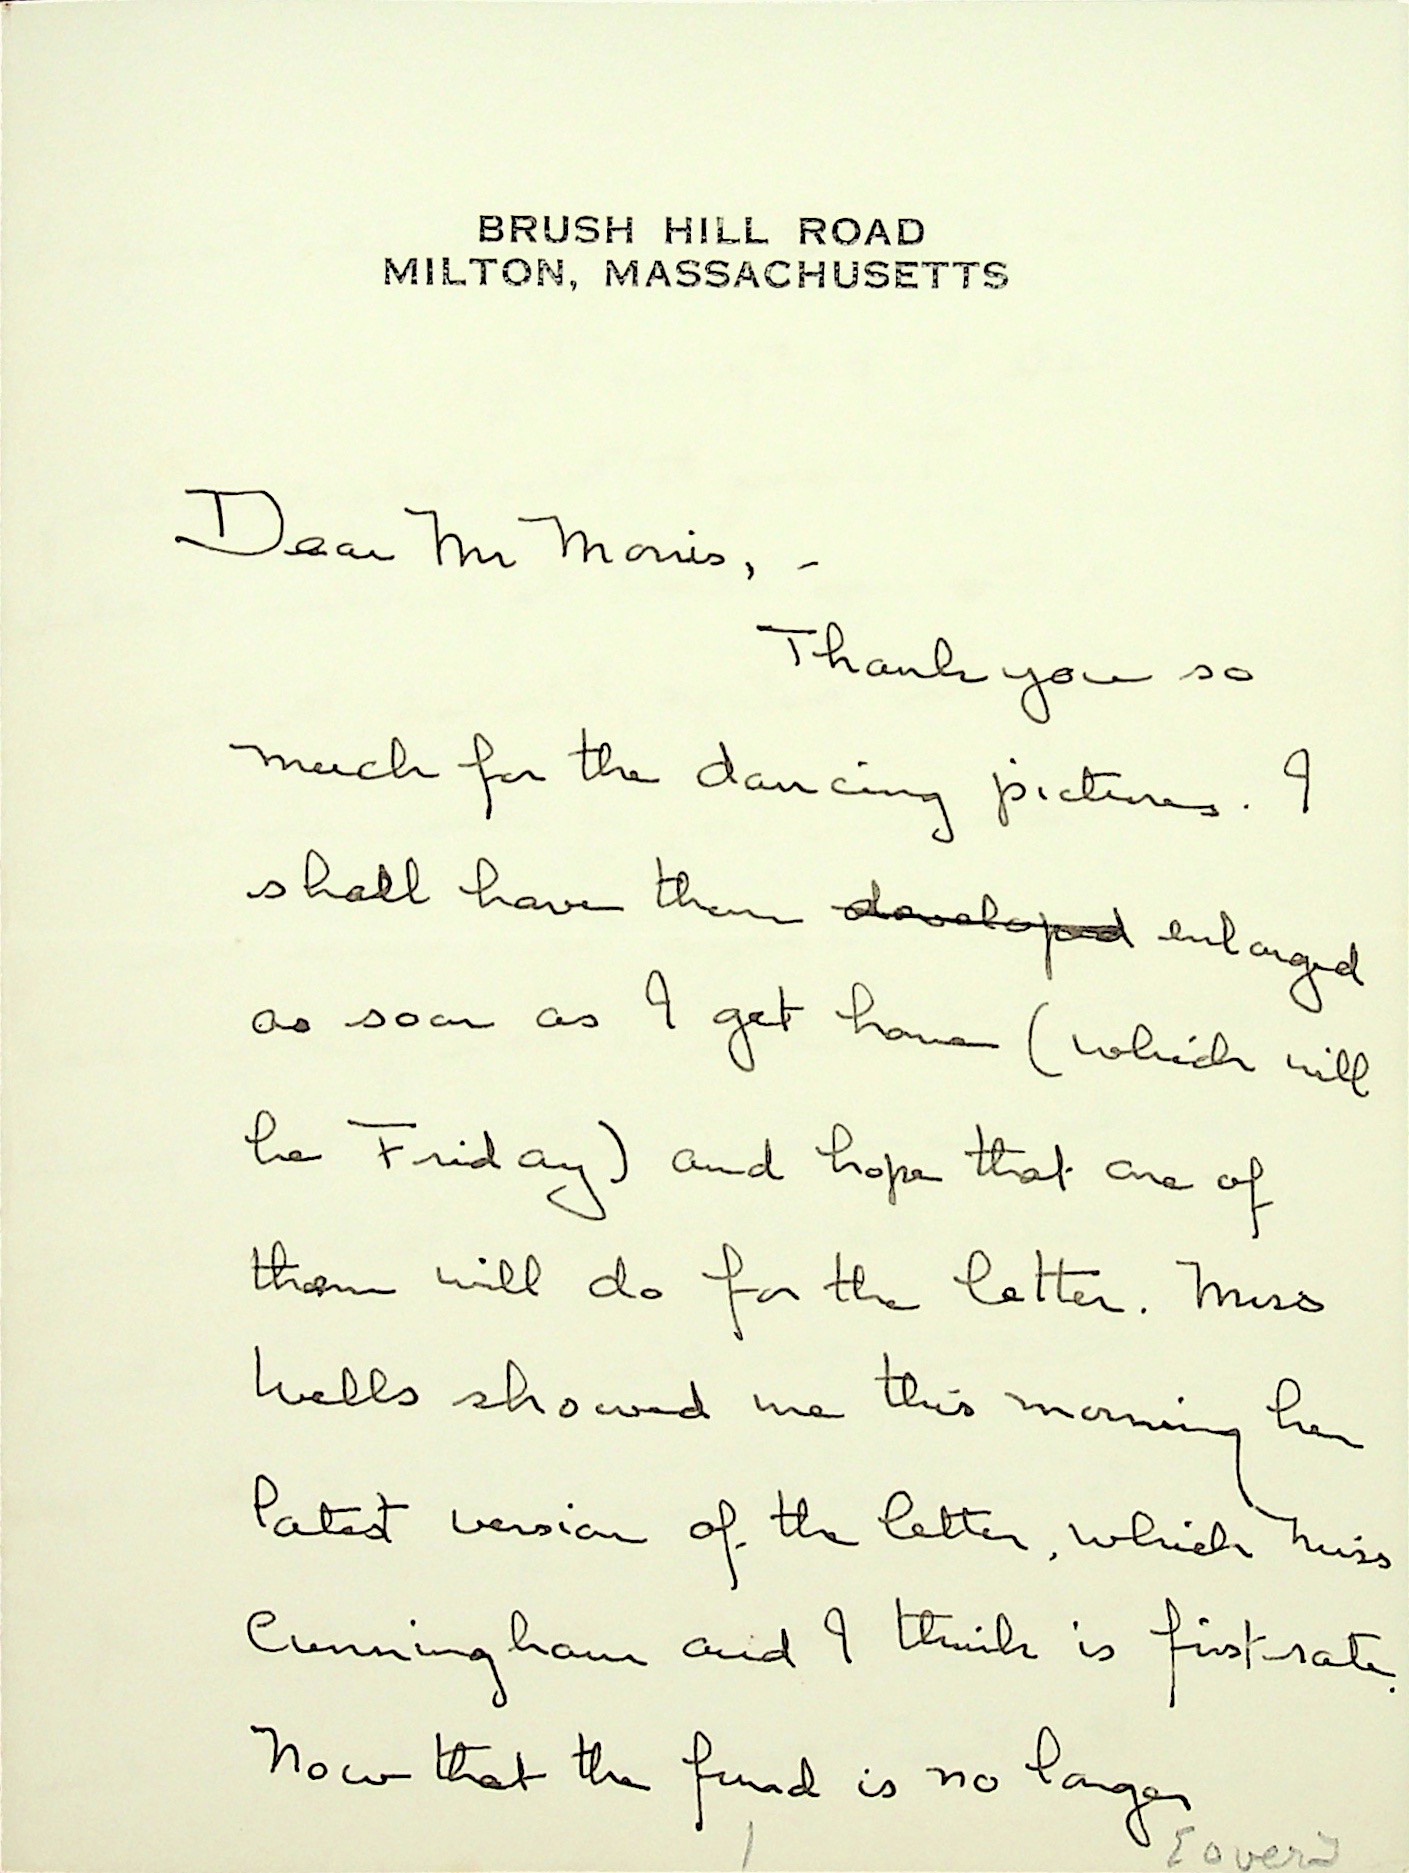 BRUSH HILL ROAD
MILTON, MASSACHUSETTS
Dear Mr Morris, -
Thank you so
much for the dancing pictures. I
shall have them developed enlarged
as soon as I get home (which will
be Friday) and hope that one of
them will do for the letter. Miss
Wells showed me this morning her
latest version of the letter, which Miss
Cunningham and I think is first-rate.
Now that the fund is no longer
1 [over]